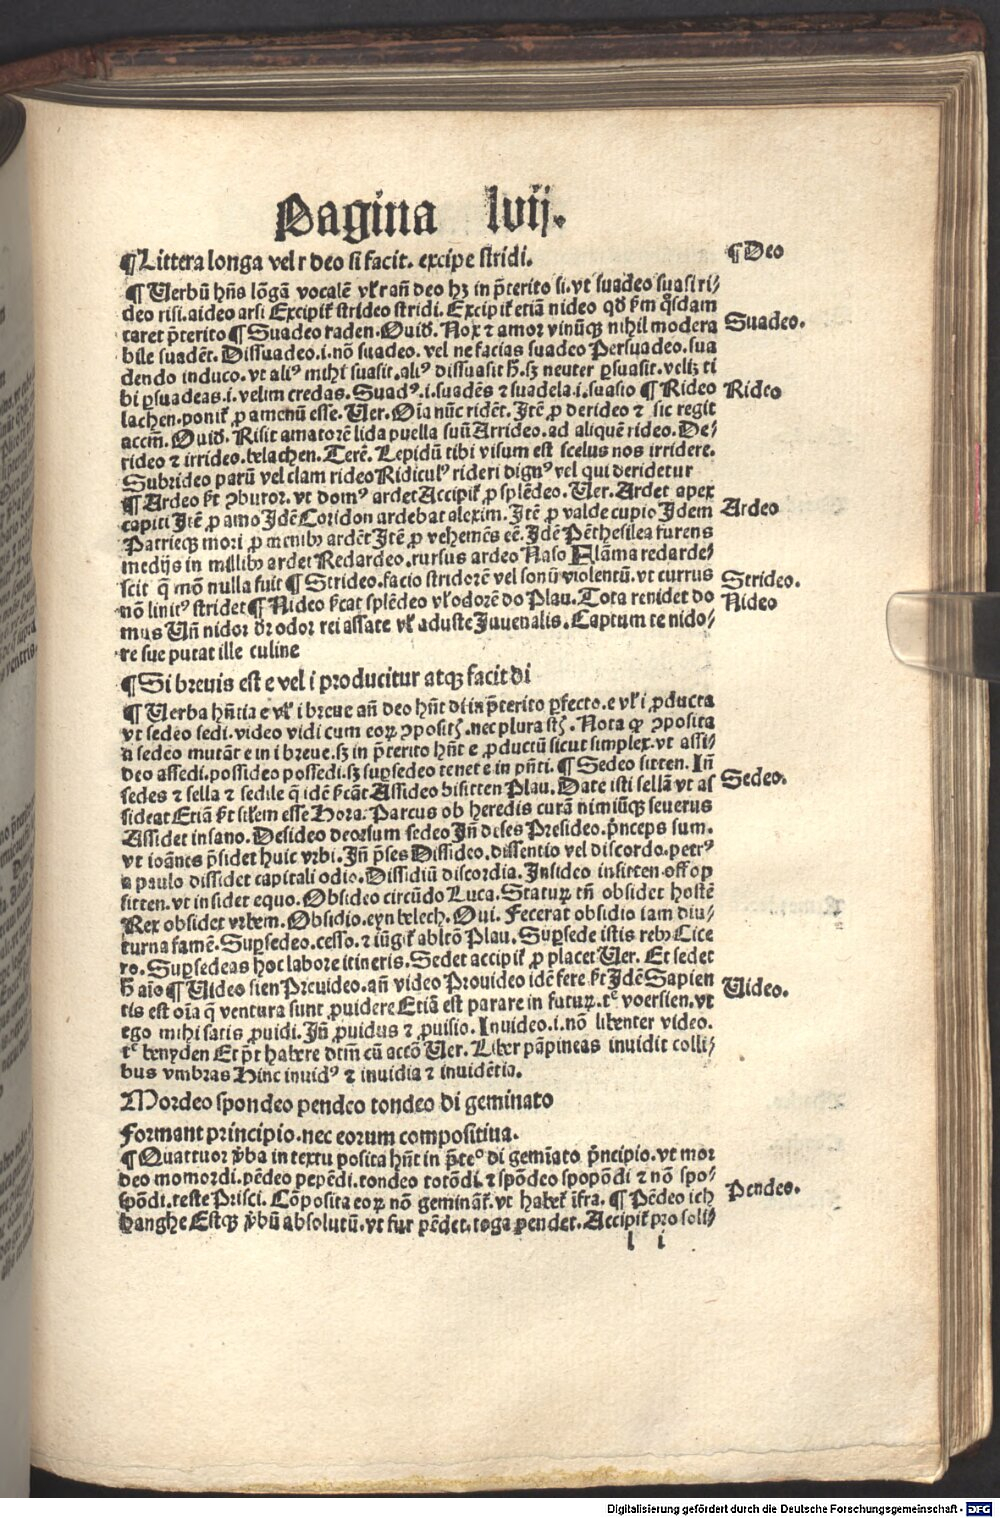 Pagina lvij.
¶Littera longa vel r deo si facit. excipe stridi.
¶Deo
¶Uerbū hn̄s lōgā vocalē vl̓ r an̄ deo hꝫ in p̄terito si.vt suadeo suasi ri⸗
deo risi.aideo arsi Excipit̓ strideo stridi. Excipit̓ etiā nideo qd̓ ẜm qͦsdam
caret p̄terito ¶Suadeo raden. Ouid̓. Nox ⁊ amor vinūqꝫ nihil modera
Suadeo.
bile suadēt. Dissuadeo.i.nō suadeo. vel ne facias suadeo Persuadeo.sua
dendo induco.vt aliꝰ mihi suasit.aliꝰ dissuasit h̄.sꝫ neuter ꝑsuasit.veliꝫ ti
bi ꝑsuadeas.i.velim credas. Suadꝰ.i.suadēs ⁊ suadela.i.suasio ¶Rideo
Rideo
lachen.ponit̓ ꝓ amenū esse. Uer. Oīa nūc ridēt. Itē ꝓ derideo ⁊ sic regit
accm̄. Ouid̓. Risit amatorē lida puella suū Arrideo.ad aliquē rideo. De⸗
rideo ⁊ irrideo.belachen. Terē. Lepidū tibi visum est scelus nos irridere.
Subrideo parū vel clam rideo Ridiculꝰ rideri dignꝰ vel qui deridetur
¶Ardeo ẜt ꝯburor. vt domꝰ ardet Accipit̓ ꝓ splēdeo. Uer. Ardet apex
Ardeo
capiti Itē ꝓ amo Idē Coridon ardebat alexim. Itē ꝓ valde cupio Idem
Patrieqꝫ mori ꝓ menibꝫ ardēt Itē ꝓ vehemēs eē. Idē Pēthesilea furens
medijs in millibꝫ ardet Redardeo.rursus ardeo Naso Flāma redarde⸗
scit q̄ mō nulla fuit ¶Strideo.facio stridorē vel sonū violentū.vt currus
Strideo.
nō linitꝰ stridet ¶Nideo ẜcat splēdeo vl̓ odorē do Plau. Tota renidet do
Nideo
mus Un̄ nidor dr̄ odor rei assate vl̓ aduste Iuuenalis. Captum te nido⸗
re sue putat ille culine
¶Si breuis est e vel i producitur atqꝫ facit di
¶Uerba hn̄tia e vl̓ i breue an̄ deo hn̄t di in p̄terito ꝑfecto.e vl̓ i ꝓducta
vt sedeo sedi.video vidi cum eoꝝ ꝯpositꝭ.nec plura st̄. Nota ꝙ ꝯposita
a sedeo mutāt e in i breue.sꝫ in p̄terito hn̄t e ꝓductū sicut simplex.vt assi⸗
deo assedi.possideo possedi.sꝫ suꝑsedeo tenet e in pn̄ti. ¶Sedeo sitten. In̄
Sedeo.
sedes ⁊ sella ⁊ sedile q̄ idē ẜcāt Assideo bisitten Plau. Date isti sellā vt as
sideat Etiā ẜt silem esse Hora. Parcus ob heredis curā nimiūqꝫ seuerus
Assidet insano. Desideo deorsum sedeo In̄ deses Presideo.p̄nceps sum.
vt ioānes p̄sidet huic vrbi. In̄ p̄ses Dissideo.dissentio vel discordo.petrꝰ
a paulo dissidet capitali odio. Dissidiū discordia. Insideo insitten.off op
sitten.vt insidet equo. Obsideo circūdo Luca. Statuꝝ tn̄ obsidet hostē
Rex obsidet vrbem. Obsidio.eyn belech. Oui. Fecerat obsidio iam diu⸗
turna famē. Suꝑsedeo.cesso.⁊ iūgit̓ abltō Plau. Suꝑsede istis rebꝫ Cice
ro. Suꝑsedeas hoc labore itineris. Sedet accipit̓ ꝓ placet Uer. Et sedet
h̄ aīo ¶Uideo sien Preuideo.an̄ video Prouideo idē fere ẜt Idē Sapien
Uideo.
tis est oīa q̄ ventura sunt ꝓuidere Etiā est parare in futuꝝ.tͤ voersien.vt
ego mihi satis ꝓuidi. In̄ ꝓuidus ⁊ ꝓuisio. Inuideo.i.nō libenter video.
tͤ benyden Et pt̄ habere dtm̄ cū actō Uer. Liber pāpineas inuidit colli⸗
bus vmbras Hinc inuidꝰ ⁊ inuidia ⁊ inuidētia.
Mordeo spondeo pendeo tondeo di geminato
Formant principio.nec eorum compositiua.
¶Quattuor v̓ba in textu posita hn̄t in p̄teͦ di gemīato p̄ncipio.vt mor
deo momordi.pēdeo pepēdi.tondeo totōdi.⁊ spōdeo spopōdi ⁊ nō spo⸗
spōdi.teste Prisci. Cōposita eoꝝ nō gemināt̓.vt habet̓ īfra. ¶Pēdeo ich
Pendeo.
hanghe Estqꝫ v̓bū absolutū.vt fur pēdet.toga pendet. Accipit̓ pro soli⸗
l i
Digitalisierung gefördert durch die Deutsche Forschungsgemeinschaft - DFG